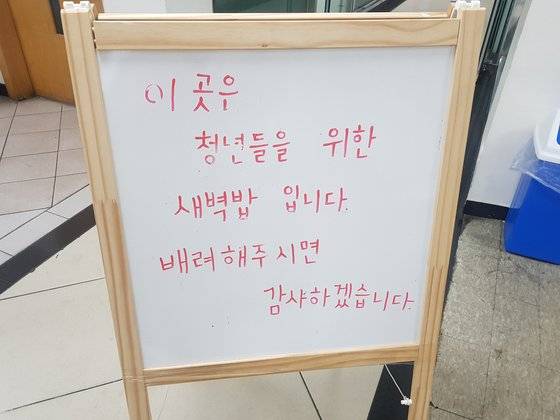 이 곳은
청년들을 위한
새벽밥 입니다.
배려해주시면
감샤하겠습니다.